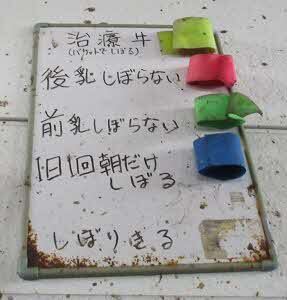 治療牛
(バケットでしぼる)
後乳しぼらない
前乳しぼらない
1日1回朝だけ
しぼる
しぼりきる